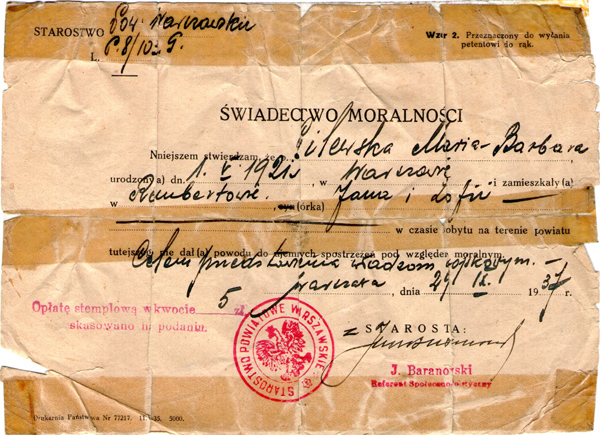 STAROSTWO Pow. Warszawskie
L. P. 8/10
Wzór 2. Przeznaczony do wydania
petentowi do rąk.
ŚWIADECTWO MORALNOŚCI
Niniejszem stwierdzam, że Gilewska Maria-Barbara
urodzony(a) dn. 1. V. 1921 r., w Warszawie i zamieszkały(a)
w Rembertowie, syn (córka) Jana i Zofii
w czasie pobytu na terenie powiatu
tutejszego nie dał(a) powodu do ujemnych spostrzeżeń pod względem moralnym.
Celem przedstawienia władzom wojskowym. —
Warszawa, dnia 29 IX. 1937 r.
Opłatę stemplową w kwocie 5 zł.
skasowano na podaniu.
STAROSTWO POWIATOWE WARSZAWSKIE
z STAROSTA:
J. Baranowski
Referent Społeczno-Polityczny
Drukarnia Państwowa Nr 77217. 11.X.35. 5000.